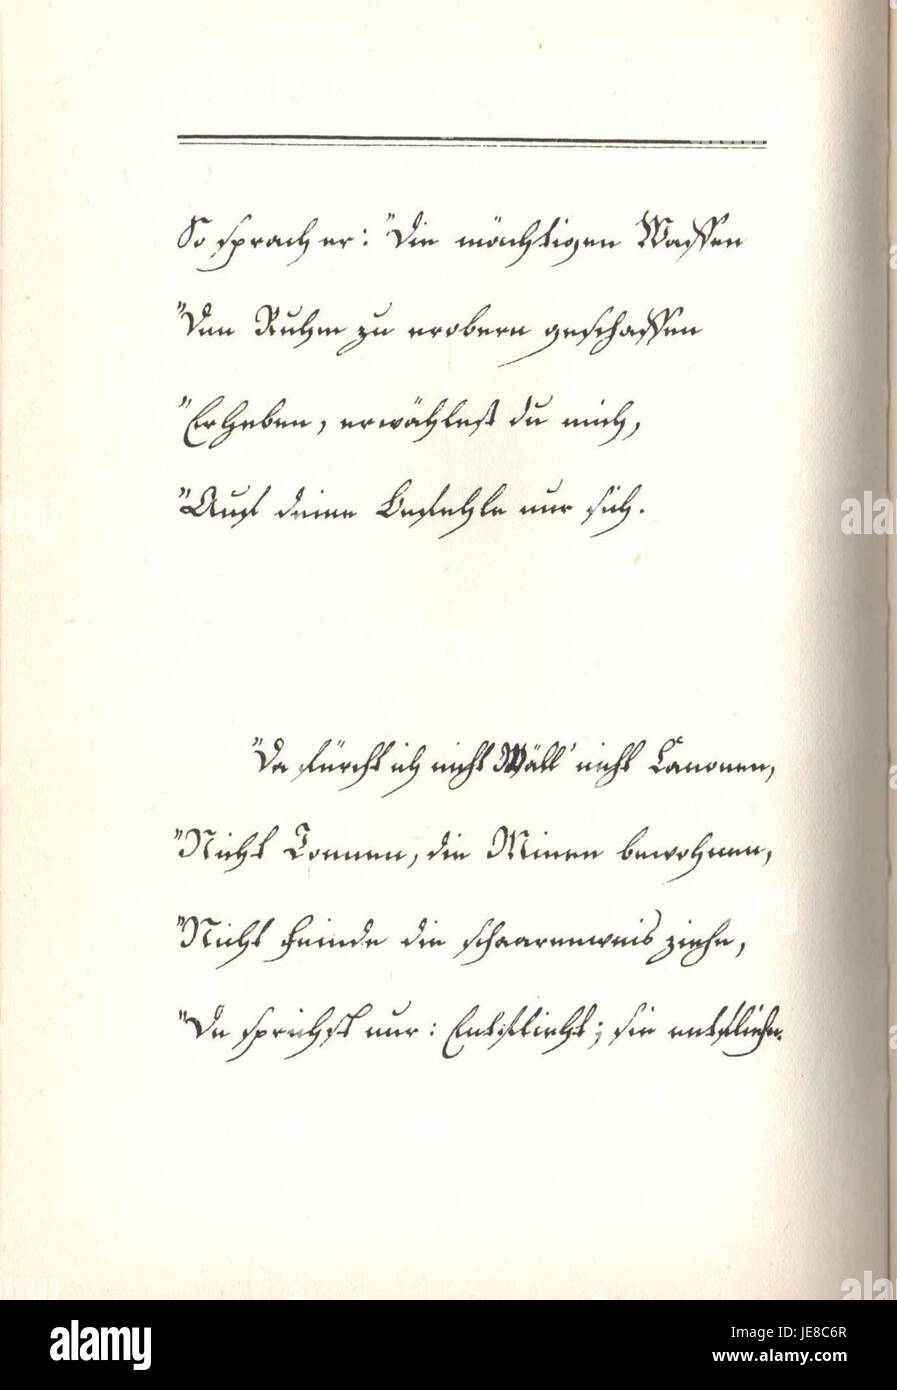 So sprach er: "Die mächtigen Waffen
"Den Ruhm zu erobern geschaffen
"Erheben, erwählest du mich,
"Auf deine Befehle nur sich.
"Da fürcht ich nicht Wäll' nicht Canonen,
"Nicht Tonnen, die Minen bewohnen,
"Nicht Feinde die schaarenweis ziehn,
"Du sprichst nur: Entflieht; sie entfliehn.
alamy
Image ID: JE8C6R
www.alamy.com